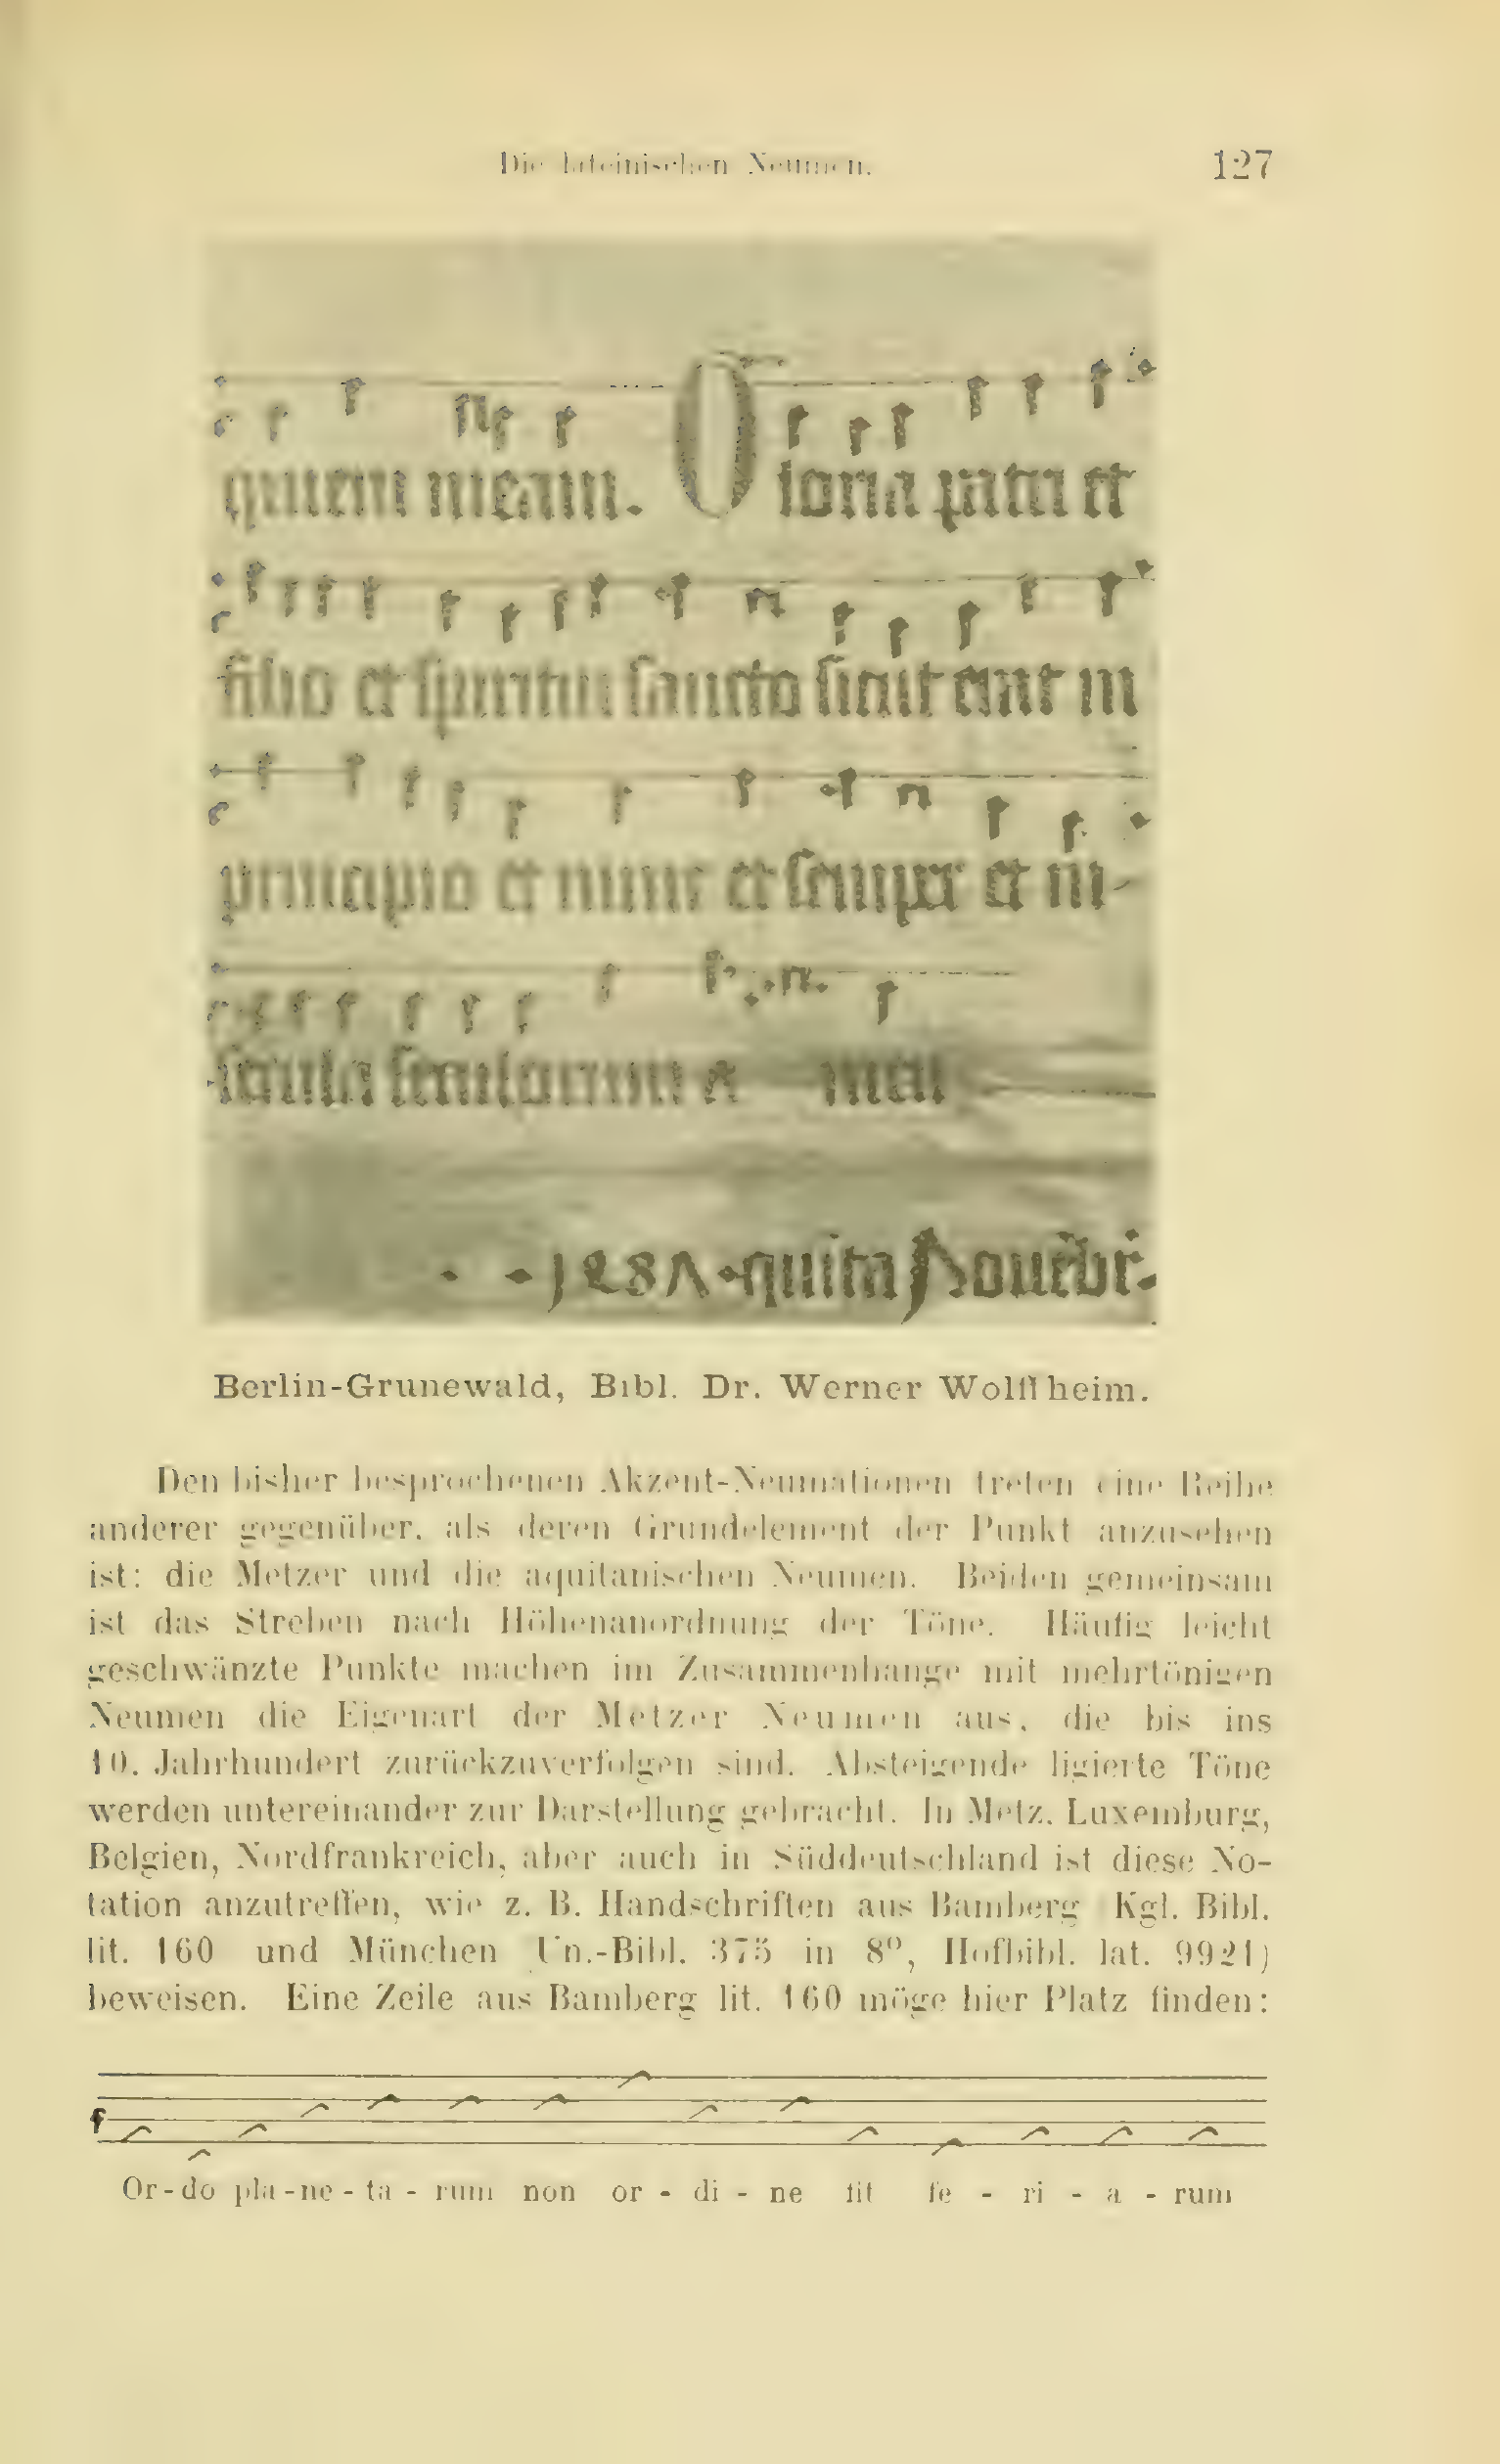 Die lateinischen Neumen. 127
quitem meam. Gloria patri et
filio et spiritui sancto sicut erat in
principio et nunc et semper et in
secula seculorum amen
Berlin-Grunewald, Bibl. Dr. Werner Wolffheim.
Den bisher besprochenen Akzent-Neumationen treten eine Reihe
anderer gegenüber, als deren Grundelement der Punkt anzusehen
ist: die Metzer und die aquitanischen Neumen. Beiden gemeinsam
ist das Streben nach Höhenanordnung der Töne. Häufig leicht
geschwänzte Punkte machen im Zusammenhange mit mehrtönigen
Neumen die Eigenart der Metzer Neumen aus, die bis ins
10. Jahrhundert zurückzuverfolgen sind. Absteigende ligierte Töne
werden untereinander zur Darstellung gebracht. In Metz, Luxemburg,
Belgien, Nordfrankreich, aber auch in Süddeutschland ist diese No-
tation anzutreffen, wie z. B. Handschriften aus Bamberg Kgl. Bibl.
lit. 160 und München Un.-Bibl. 375 in 8º, Hofbibl. lat. 9921)
beweisen. Eine Zeile aus Bamberg lit. 160 möge hier Platz finden:
Or-do pla-ne-ta-rum non or-di-ne fit fe-ri-a-rum